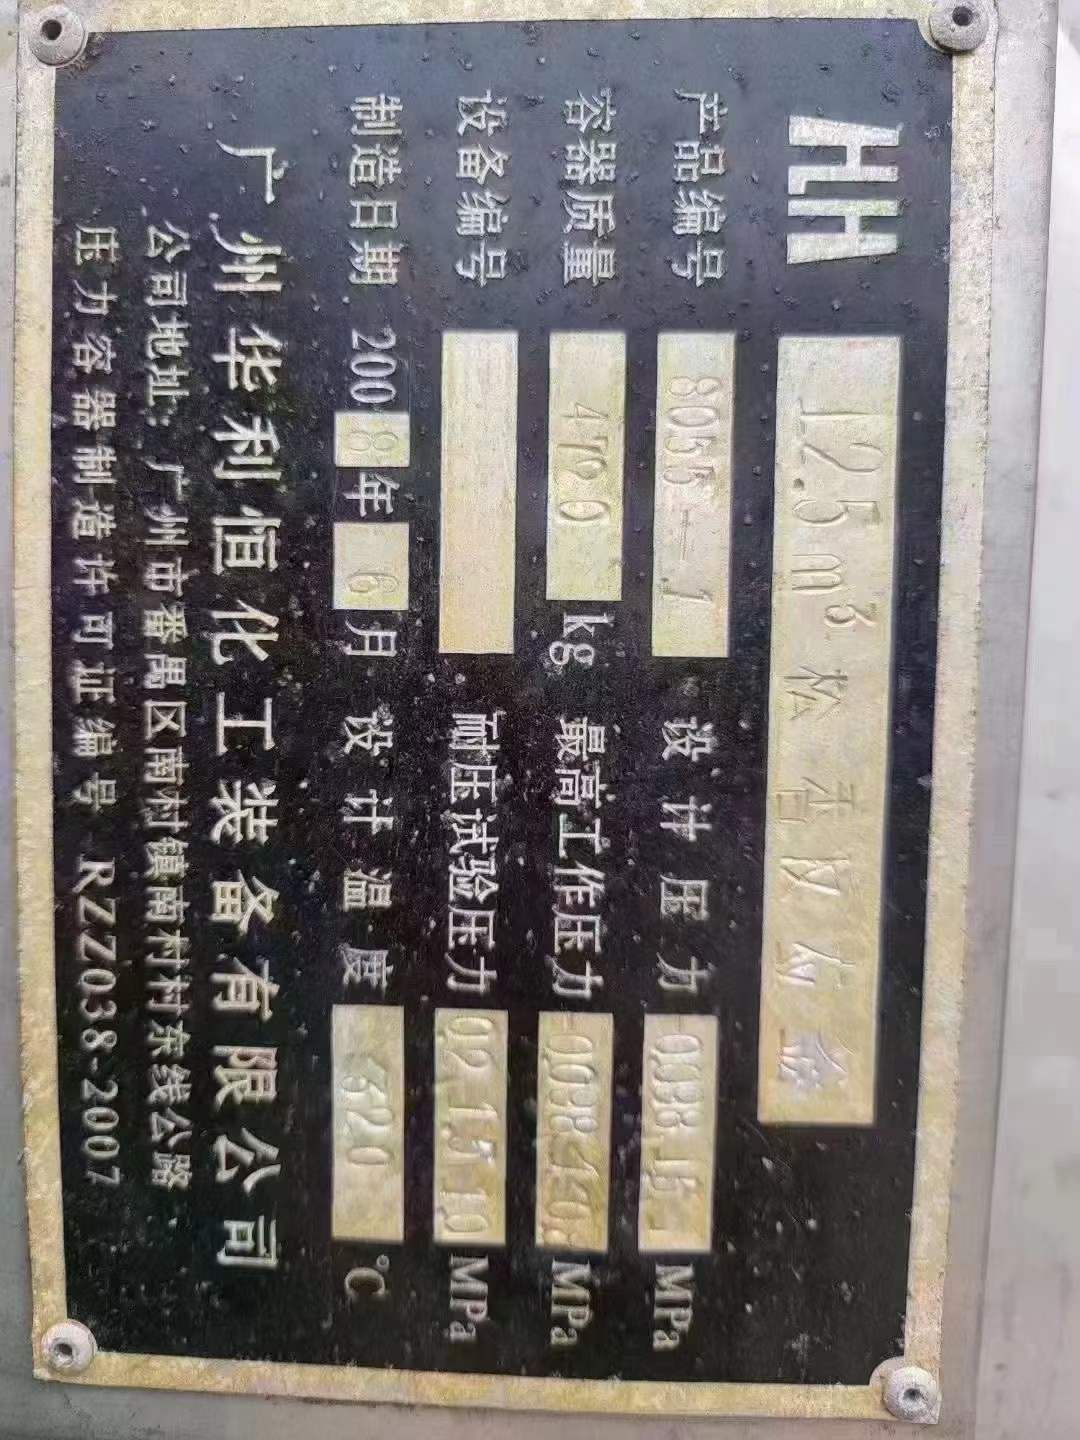 HH 12.5m³松香反应釜
产品编号 8055-1 设计压力 MPa
容器质量 4790 kg 最高工作压力 MPa
设备编号 耐压试验压力 MPa
制造日期 2008年6月 设计温度 320 ℃
广州华利恒化工装备有限公司
公司地址:广州市番禺区南村镇南村村东线公路
压力容器制造许可证编号 RZZ038-2007